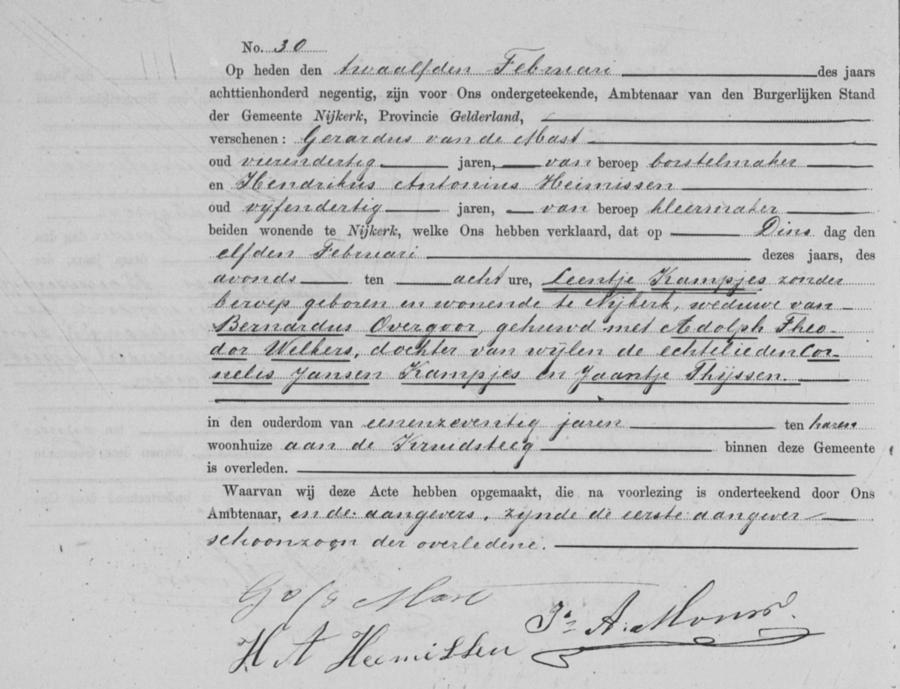 No. 30
Op heden den twaalfden Februari des jaars
achttienhonderd negentig, zijn voor Ons ondergeteekende, Ambtenaar van den Burgerlijken Stand
der Gemeente Nijkerk, Provincie Gelderland,
verschenen: Gerardus van de Mast
oud vierendertig jaren, van beroep borstelmaker
en Hendrikus Antonius Heimissen
oud vyfendertig jaren, van beroep kleermaker
beiden wonende te Nijkerk, welke Ons hebben verklaard, dat op Dins dag den
elfden Februari dezes jaars, des
avonds ten acht ure, Leentje Kampjes zonder
beroep geboren en wonende te Nykerk, weduwe van
Bernardus Overgoor, gehuwd met Adolph Theo-
dor Welkers, dochter van wylen de echtelieden Cor-
nelis Jansen Kampjes en Jaantje Thyssen.
in den ouderdom van eenenzeventig jaren ten haren
woonhuize aan de Kruidsteeg binnen deze Gemeente
is overleden.
Waarvan wij deze Acte hebben opgemaakt, die na voorlezing is onderteekend door Ons
Ambtenaar, en de aangevers, zynde de eerste aangever
schoonzoon der overledene.
G v/d Mast
H A Heemissen